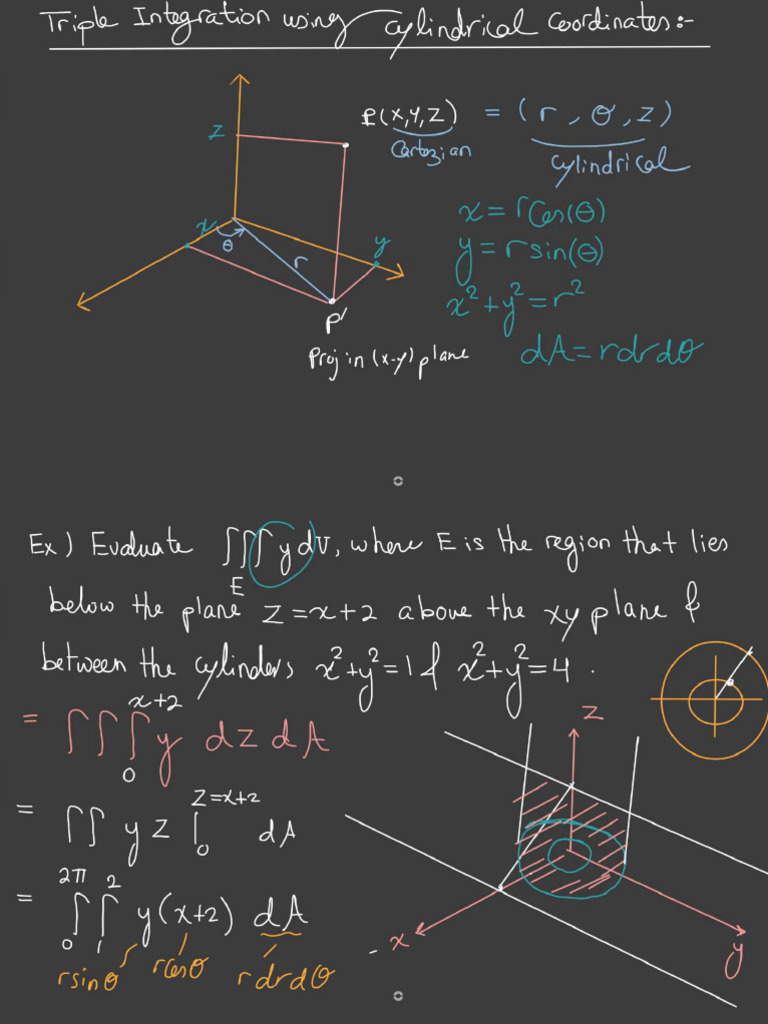 Triple Integration using cylindrical coordinates:-
P(x,y,z) = (r, θ, z)
Cartezian
cylindrical
z
x = rCos(θ)
x
θ
r
y
y = rsin(θ)
x² + y² = r²
P'
Proj in (x-y) plane
dA = rdrdθ
Ex) Evaluate ∭ y dV, where E is the region that lies
E
below the plane z = x+2 above the xy plane &
between the cylinders x²+y²=1 & x²+y²=4.
= ∫∫∫₀^(x+2) y dz dA
z
= ∫∫ yz |₀^(z=x+2) dA
= ∫₀^(2π) ∫₁^2 y(x+2) dA
x
y
rsinθ rCosθ rdrdθ